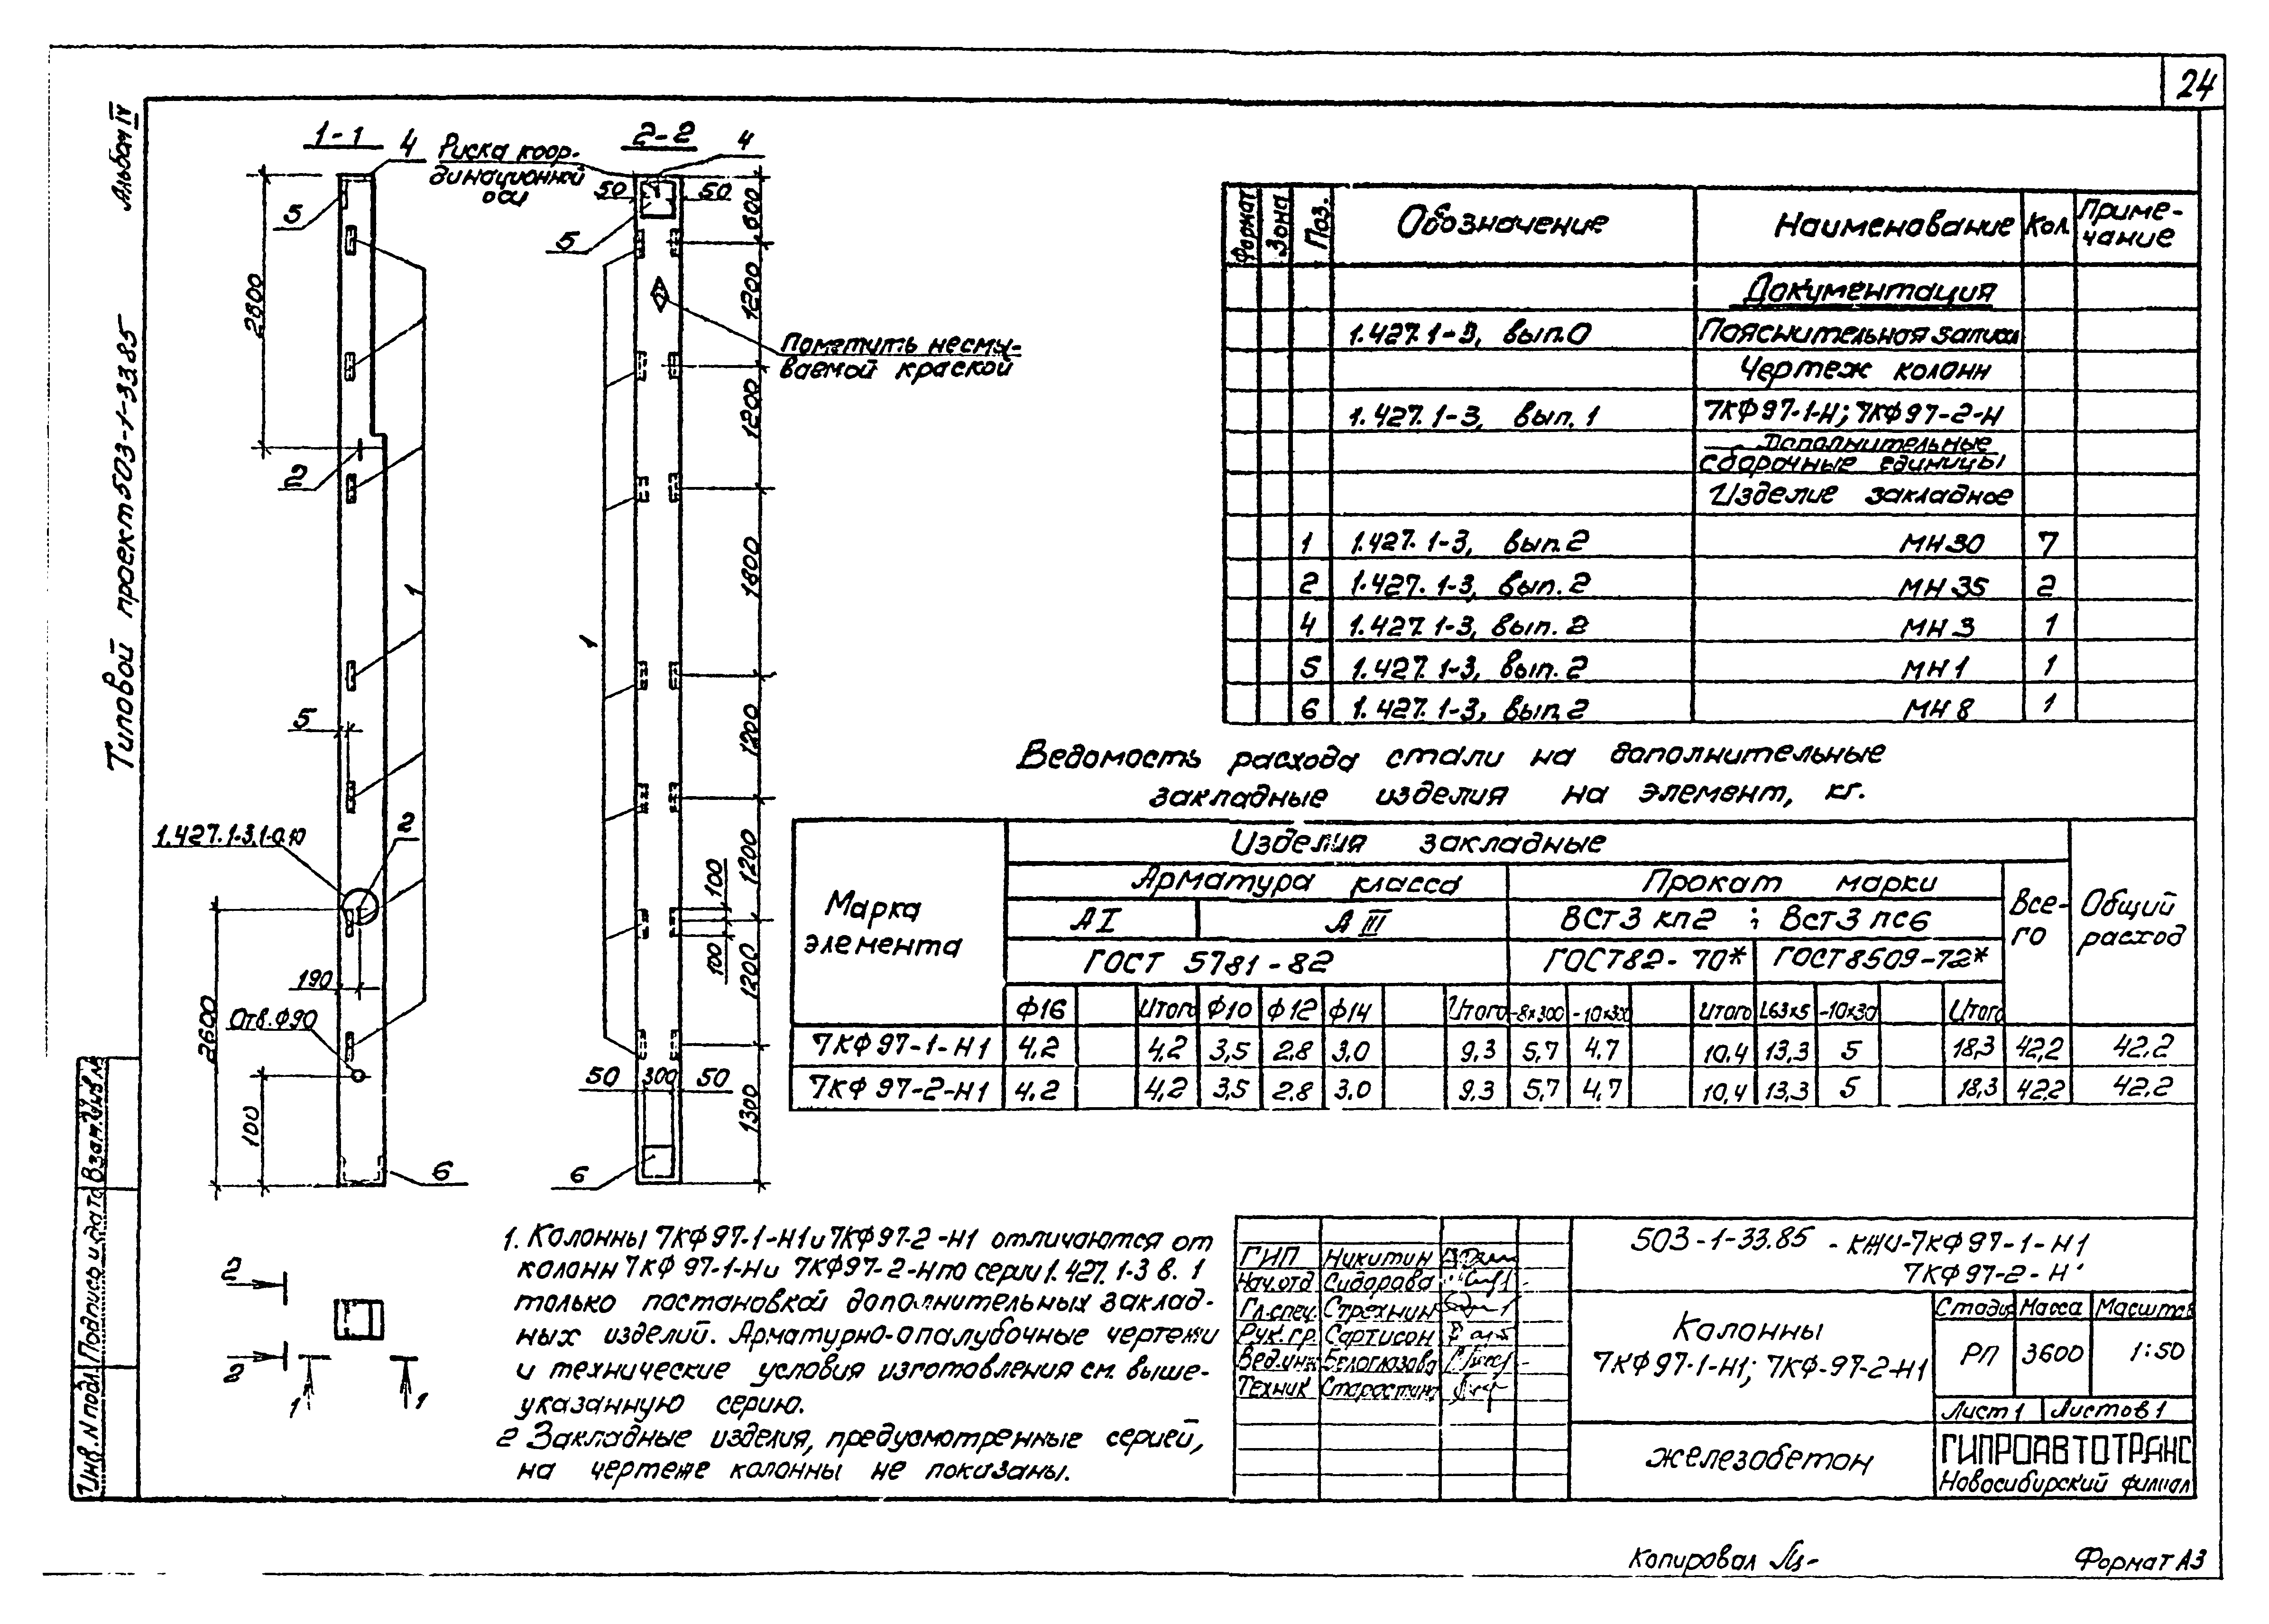 24
Альбом IV
Типовой проект 503-1-33.85
Инв. N подл. Подпись и дата Взам. инв. №
1-1
4
Риска коор-
динационной
оси
2-2
4
5
50
50
5
600
1200
1200
1800
1200
1200
1200
1300
2800
2
1
1
Пометить несмы-
ваемой краской
5
1.427.1-3.1-0.10
2
100
100
190
Отв. Ф90
2600
100
50 300 50
6
6
2
2
1
1
Формат Зона Поз. Обозначение Наименование Кол. Приме-
чание
Документация
1.427.1-3, вып.0 Пояснительная записка
Чертеж колонн
1.427.1-3, вып.1 7КФ97-1-Н; 7КФ97-2-Н
Дополнительные
сборочные единицы
Изделие закладное
1 1.427.1-3, вып.2 МН30 7
2 1.427.1-3, вып.2 МН35 2
4 1.427.1-3, вып.2 МН3 1
5 1.427.1-3, вып.2 МН1 1
6 1.427.1-3, вып.2 МН8 1
Ведомость расхода стали на дополнительные
закладные изделия на элемент, кг.
Марка
элемента
Изделия закладные
Арматура класса Прокат марки
Все-
го
Общий
расход
АI АIII ВСт3 кп2 ; ВСт3 пс6
ГОСТ 5781-82 ГОСТ82-70* ГОСТ8509-72*
Ф16 Итого Ф10 Ф12 Ф14 Итого -8х300 -10х300 Итого L63х5 -10х30 Итого
7КФ97-1-Н1 4.2 4,2 3,5 2.8 3.0 9.3 5,7 4.7 10,4 13,3 5 18,3 42,2 42.2
7КФ97-2-Н1 4.2 4,2 3,5 2.8 3.0 9.3 5,7 4,7 10,4 13,3 5 18,3 42.2 42.2
1. Колонны 7КФ97-1-Н1 и 7КФ97-2-Н1 отличаются от
колонн 7КФ97-1-Н и 7КФ97-2-Н по серии 1.427.1-3 в. 1
только постановкой дополнительных заклад-
ных изделий. Арматурно-опалубочные чертежи
и технические условия изготовления см. выше-
указанную серию.
2 Закладные изделия, предусмотренные серией,
на чертеже колонны не показаны.
ГИП Никитин
Нач.отд Сидорова
Гл.спец. Стрехнин
Рук.гр. Сартисон
Вед.инж Белоглазова
Техник Старостина
503-1-33.85 - КЖИ-7КФ97-1-Н1
7КФ97-2-Н'
Колонны
7КФ97-1-Н1; 7КФ-97-2-Н1
Стадия Масса Масштаб
РП 3600 1:50
Лист 1 Листов 1
железобетон
ГИПРОАВТОТРАНС
Новосибирский филиал
Копировал
Формат А3